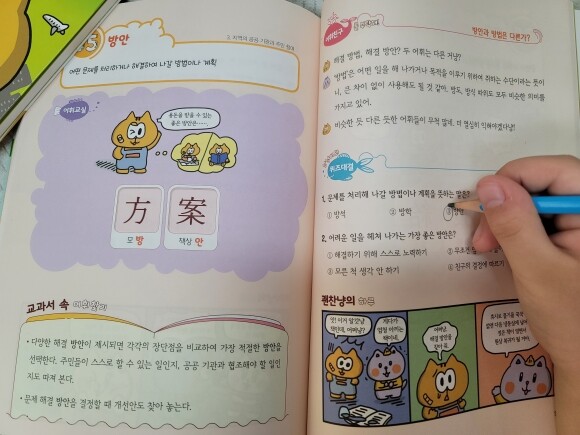 5 방안
5. 지역의 공공 기관과 주민 참여
어떤 문제를 처리하거나 해결하여 나갈 방법이나 계획
어휘교실
용돈을 받을 수 있는
좋은 방안은……
方 案
모 방 책상 안
교과서 속 어휘찾기
• 다양한 해결 방안이 제시되면 각각의 장단점을 비교하여 가장 적절한 방안을
선택한다. 주민들이 스스로 할 수 있는 일인지, 공공 기관과 협조해야 할 일인
지도 따져 본다.
• 문제 해결 방안을 결정할 때 개선안도 찾아 놓는다.
어휘친구
방안과 방법은 다른가?
해결 방법, 해결 방안? 두 어휘는 다른 거냥?
'방법'은 어떤 일을 해 나가거나 목적을 이루기 위하여 취하는 수단이라는 뜻이
니, 큰 차이 없이 사용해도 될 것 같아. 방도, 방식 따위도 모두 비슷한 의미를
가지고 있어.
비슷한 듯 다른 듯한 어휘들이 무척 많네. 더 열심히 익혀야겠다냥!
퀴즈대결
1. 문제를 처리해 나갈 방법이나 계획을 뜻하는 말은?
① 방석 ② 방학 ③ 방안
2. 어려운 일을 헤쳐 나가는 가장 좋은 방안은?
① 해결하기 위해 스스로 노력하기 ② 무조건
③ 모른 척 생각 안 하기 ④ 친구의 결정에 따르기
펀찬냥의 하루